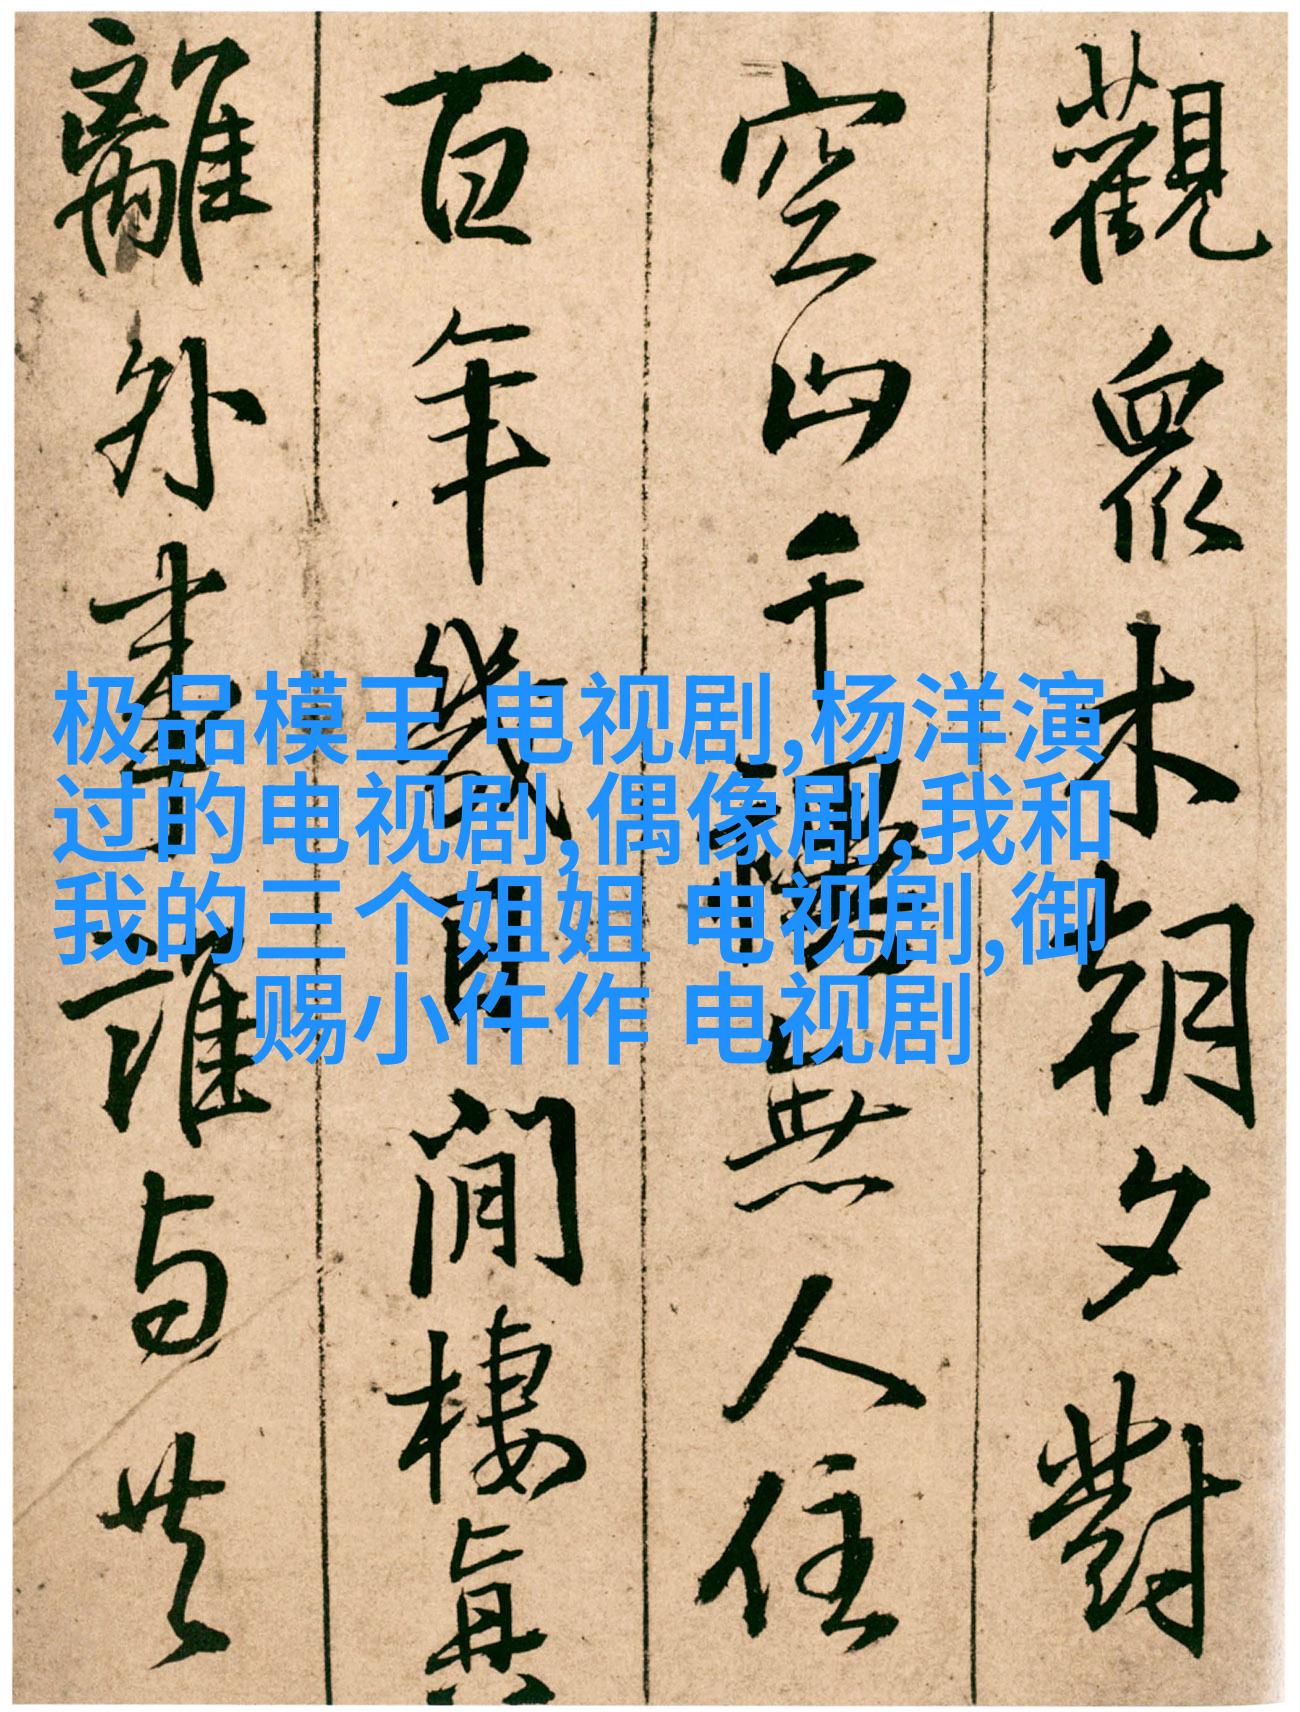 觀眾木朝夕對
空山千無人住
百年幾日閒棲真
離外誰与共
极品模王 电视剧,杨洋演
过的电视剧,偶像剧,我和
我的三个姐姐 电视剧,御
赐小仵作 电视剧